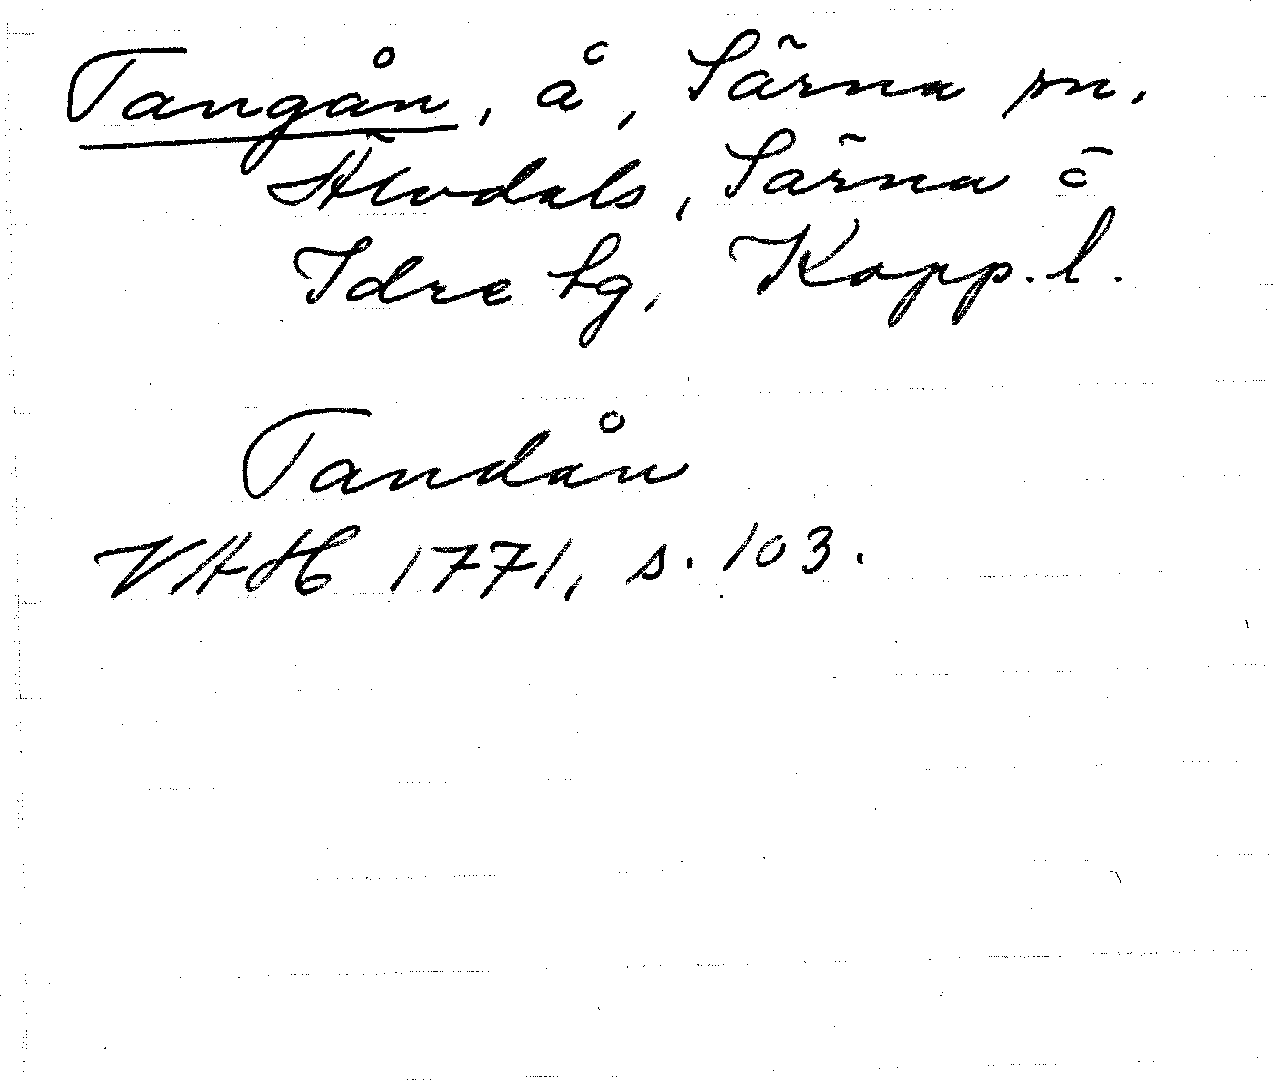 Tangån, å, Särna sn.
Älvdals, Särna o
Idre tg, Kopp. l.
Tandån
VAH 1771, s. 103.